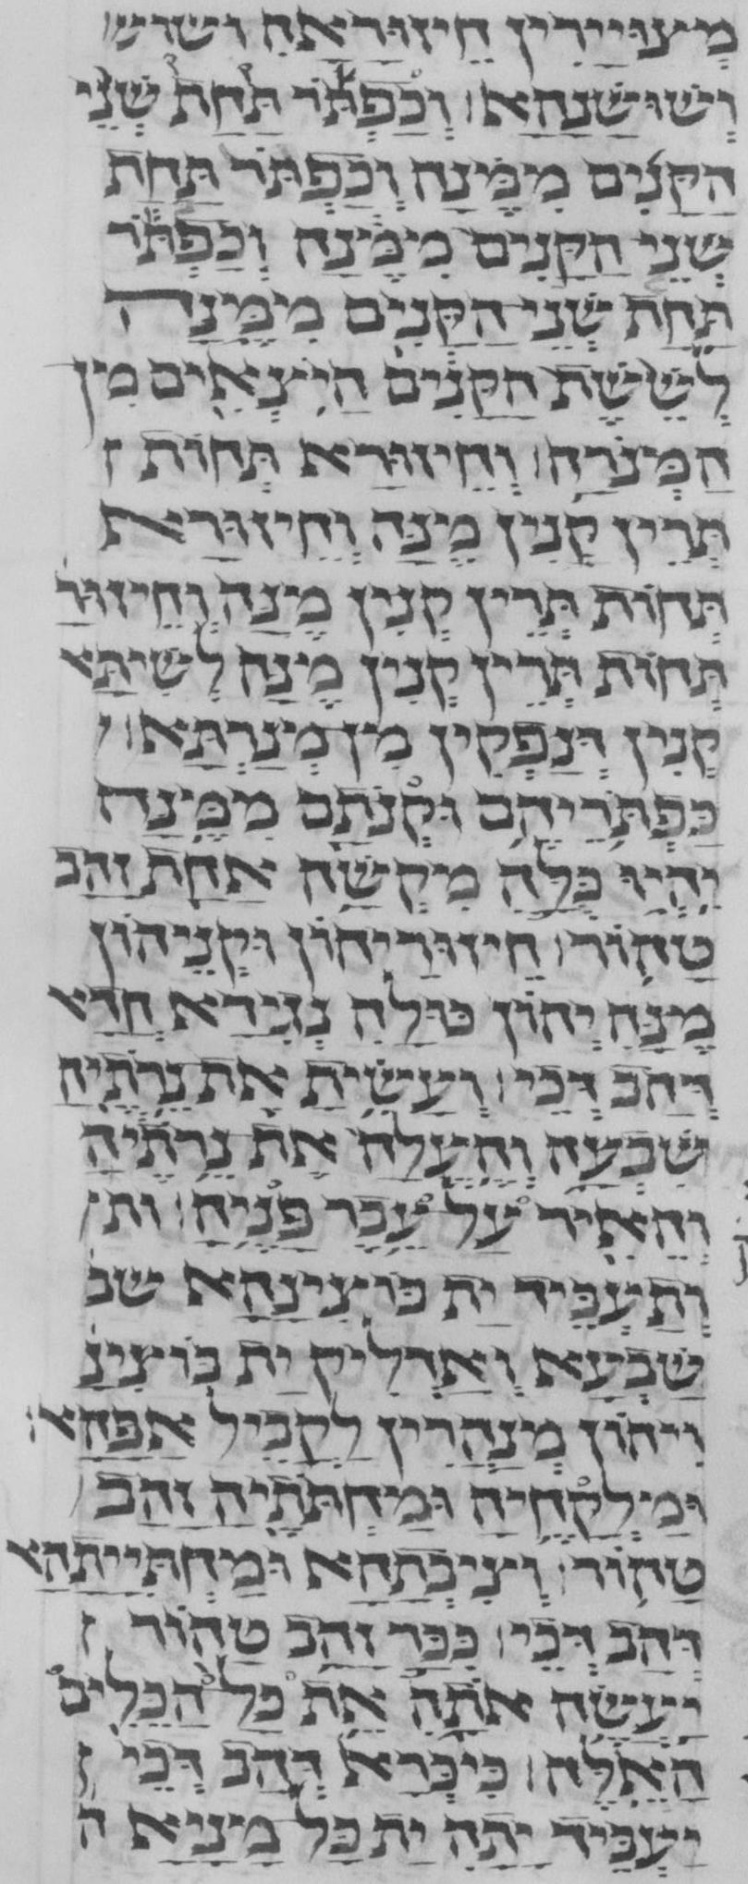 מְצוּיָירִין חֵיזוּרַאהַ ושוש
וְשׁוּשַׁנַהַא׃ וְכַפְתֹּר תַּחַת שְׁנֵי
הַקָּנִים מִמֶּנָּה וְכַפְתֹּר תַּחַת
שְׁנֵי הַקָּנִים מִמֶּנָּה וְכַפְתֹּר
תַּחַת שְׁנֵי הַקָּנִים מִמֶּנָּה
לְשֵׁשֶׁת הַקָּנִים הַיֹּצְאִים מִן
הַמְּנֹרָה׃ וְחֵיזוּרַא תְּחוֹת
תְּרֵין קְנִין מִינַּהּ וְחֵיזוּרַא
תְּחוֹת תְּרֵין קְנִין מִינַּהּ וְחֵיזוּר
תְּחוֹת תְּרֵין קְנִין מִינַּהּ לְשִׁיתַּא
קְנִין דְּנָפְקִין מִן מְנָרְתַּא׃
כַּפְתֹּרֵיהֶם וּקְנֹתָם מִמֶּנָּה
יִהְיוּ כֻּלָּהּ מִקְשָׁה אַחַת זָהָב
טָהוֹר׃ חֵיזוּרֵיהוֹן וּקְנֵיהוֹן
מִנַּהּ יְהוֹן כּוּלַּהּ נְגִידָא חֲדָא
דְּהַב דְּכֵי׃ וְעָשִׂיתָ אֶת נֵרֹתֶיהָ
שִׁבְעָה וְהֶעֱלָה אֶת נֵרֹתֶיהָ
וְהֵאִיר עַל עֵבֶר פָּנֶיהָ׃ ות
וְתַעֲבֵיד יַת בּוֹצִינַהַא שב
שַׁבְעָא וְאַדְלֵיק יַת בּוֹצִינַ
וִיהוֹן מְנַהֲרִין לָקֳבֵיל אַפַּהַא׃
וּמַלְקָחֶיהָ וּמַחְתֹּתֶיהָ זָהָב
טָהוֹר׃ וְצִיבְתַהַא וּמַחְתְּיָיתַהַא
דְּהַב דְּכֵי׃ כִּכַּר זָהָב טָהוֹר
יַעֲשֶׂה אֹתָהּ אֵת כָּל הַכֵּלִים
הָאֵלֶּה׃ כִּיכְּרָא דְּהַב דְּכֵי
יַעֲבֵיד יָתַהּ יַת כָּל מָנַיָּא ה